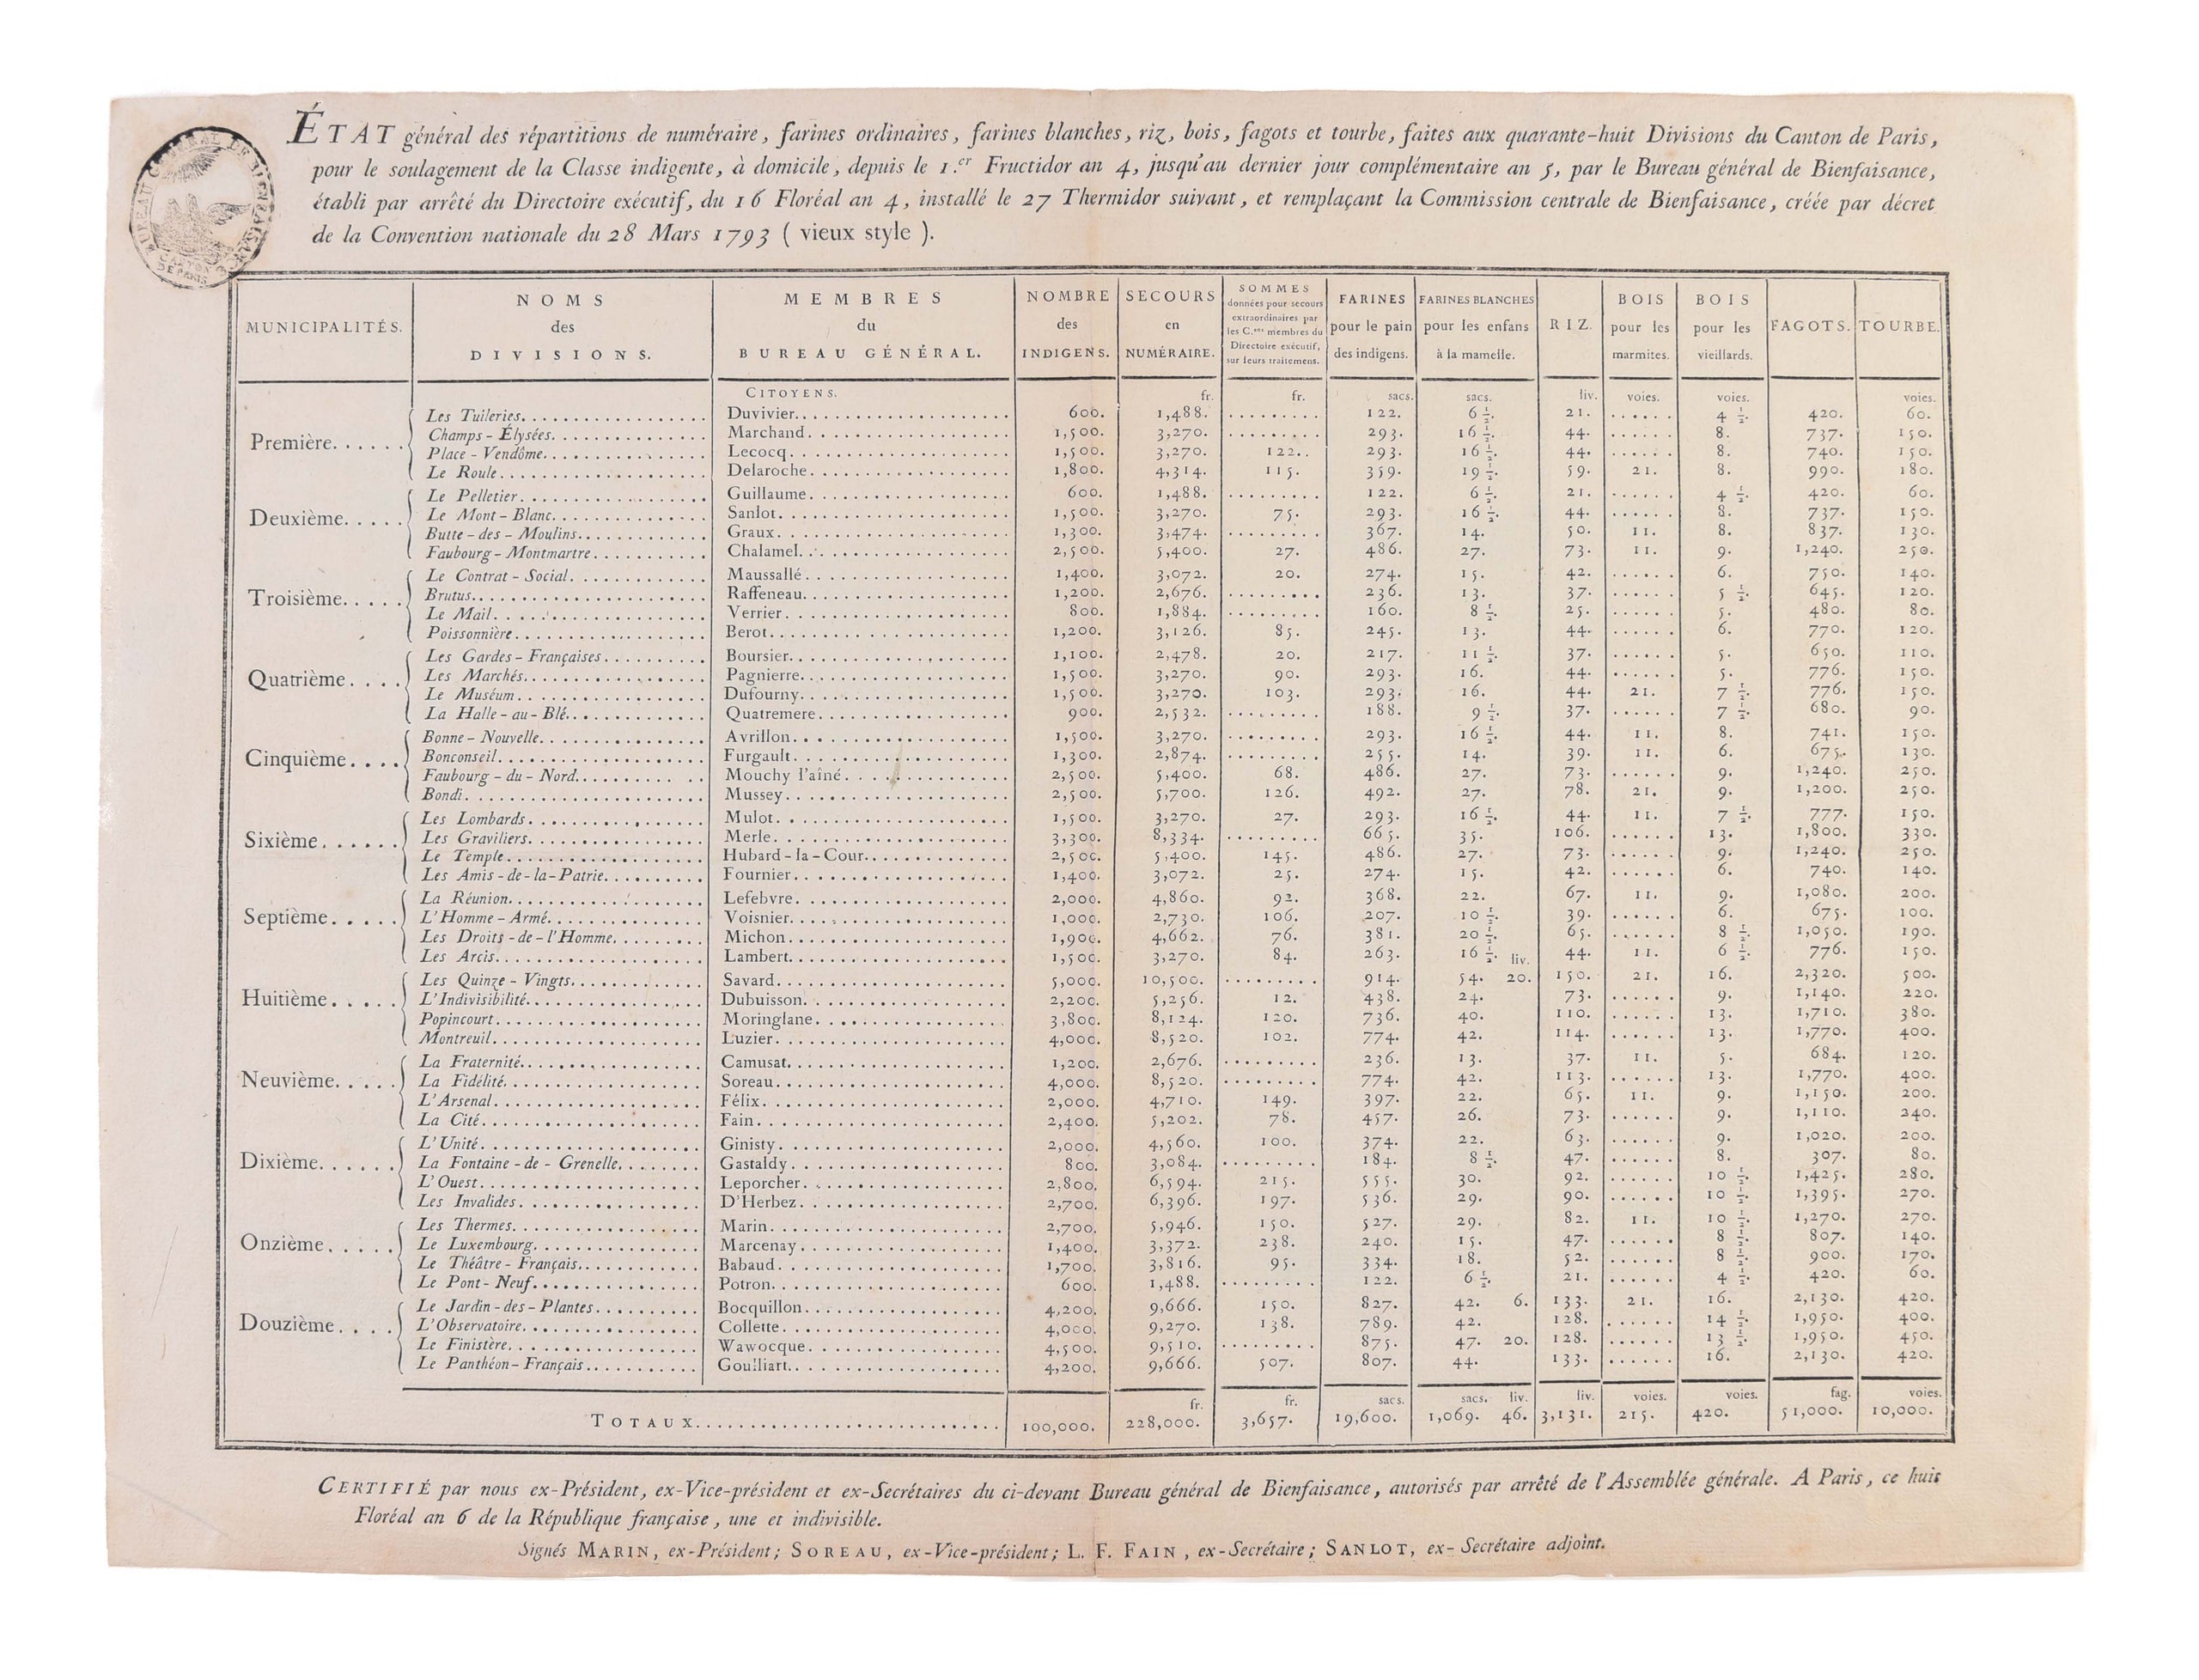 BUREAU GÉNÉRAL DE BIENFAISANCE
CANTON
DE PARIS
ÉTAT général des répartitions de numéraire, farines ordinaires, farines blanches, riz, bois, fagots et tourbe, faites aux quarante-huit Divisions du Canton de Paris,
pour le soulagement de la Classe indigente, à domicile, depuis le 1.er Fructidor an 4, jusqu'au dernier jour complémentaire an 5, par le Bureau général de Bienfaisance,
établi par arrêté du Directoire exécutif, du 16 Floréal an 4, installé le 27 Thermidor suivant, et remplaçant la Commission centrale de Bienfaisance, créée par décret
de la Convention nationale du 28 Mars 1793 ( vieux style ).
MUNICIPALITÉS. NOMS des DIVISIONS. MEMBRES du BUREAU GÉNÉRAL. NOMBRE des INDIGENS. SECOURS en NUMÉRAIRE. SOMMES données pour secours extraordinaires par les C.ens membres du Directoire exécutif, sur leurs traitemens. FARINES pour le pain des indigens. FARINES BLANCHES pour les enfans à la mamelle. RIZ. BOIS pour les marmites. BOIS pour les vieillards. FAGOTS. TOURBE.
CITOYENS. fr. fr. sacs. sacs. liv. voies. voies. voies.
Les Tuileries. Duvivier. 600. 1,488. ......... 122. 6 1/2. 21. ...... 4 1/2. 420. 60.
Première. Champs-Élysées. Marchand. 1,500. 3,270. ......... 293. 16 1/2. 44. ...... 8. 737. 150.
Place-Vendôme. Lecocq. 1,500. 3,270. 122.. 293. 16 1/2. 44. ...... 8. 740. 150.
Le Roule. Delaroche. 1,800. 4,314. 115. 359. 19 1/2. 59. 21. 8. 990. 180.
Le Pelletier. Guillaume. 600. 1,488. ......... 122. 6 1/2. 21. ...... 4 1/2. 420. 60.
Deuxième. Le Mont-Blanc. Sanlot. 1,500. 3,270. 75. 293. 16 1/2. 44. ...... 8. 737. 150.
Butte-des-Moulins. Graux. 1,300. 3,474. ......... 367. 14. 50. 11. 8. 837. 130.
Faubourg-Montmartre. Chalamel. 2,500. 5,400. 27. 486. 27. 73. 11. 9. 1,240. 250.
Le Contrat-Social. Maussallé. 1,400. 3,072. 20. 274. 15. 42. ...... 6. 750. 140.
Troisième. Brutus. Raffeneau. 1,200. 2,676. ......... 236. 13. 37. ...... 5 1/2. 645. 120.
Le Mail. Verrier. 800. 1,884. ......... 160. 8 1/2. 25. ...... 5. 480. 80.
Poissonnière. Berot. 1,200. 3,126. 85. 245. 13. 44. ...... 6. 770. 120.
Les Gardes-Françaises. Boursier. 1,100. 2,478. 20. 217. 11 1/2. 37. ...... 5. 650. 110.
Quatrième. Les Marchés. Pagnierre. 1,500. 3,270. 90. 293. 16. 44. ...... 5. 776. 150.
Le Muséum. Dufourny. 1,500. 3,270. 103. 293. 16. 44. 21. 7 1/2. 776. 150.
La Halle-au-Blé. Quatremere. 900. 2,532. ......... 188. 9 1/2. 37. ...... 7 1/2. 680. 90.
Bonne-Nouvelle. Avrillon. 1,500. 3,270. ......... 293. 16 1/2. 44. 11. 8. 741. 150.
Cinquième. Bonconseil. Furgault. 1,300. 2,874. ......... 255. 14. 39. 11. 6. 675. 130.
Faubourg-du-Nord. Mouchy l'aîné. 2,500. 5,400. 68. 486. 27. 73. ...... 9. 1,240. 250.
Bondi. Mussey. 2,500. 5,700. 126. 492. 27. 78. 21. 9. 1,200. 250.
Les Lombards. Mulot. 1,500. 3,270. 27. 293. 16 1/2. 44. 11. 7 1/2. 777. 150.
Sixième. Les Graviliers. Merle. 3,300. 8,334. ......... 665. 35. 106. ...... 13. 1,800. 330.
Le Temple. Hubard-la-Cour. 2,500. 5,400. 145. 486. 27. 73. ...... 9. 1,240. 250.
Les Amis-de-la-Patrie. Fournier. 1,400. 3,072. 25. 274. 15. 42. ...... 6. 740. 140.
La Réunion. Lefebvre. 2,000. 4,860. 92. 368. 22. 67. 11. 9. 1,080. 200.
Septième. L'Homme-Armé. Voisnier. 1,000. 2,730. 106. 207. 10 1/2. 39. ...... 6. 675. 100.
Les Droits-de-l'Homme. Michon. 1,900. 4,662. 76. 381. 20 1/2. 65. ...... 8 1/2. 1,050. 190.
Les Arcis. Lambert. 1,500. 3,270. 84. 263. 16 1/2. liv. 44. 11. 6 1/2. 776. 150.
Les Quinze-Vingts. Savard. 5,000. 10,500. ......... 914. 54. 20. 150. 21. 16. 2,320. 500.
Huitième. L'Indivisibilité. Dubuisson. 2,200. 5,256. 12. 438. 24. 73. ...... 9. 1,140. 220.
Popincourt. Moringlane. 3,800. 8,124. 120. 736. 40. 110. ...... 13. 1,710. 380.
Montreuil. Luzier. 4,000. 8,520. 102. 774. 42. 114. ...... 13. 1,770. 400.
La Fraternité. Camusat. 1,200. 2,676. ......... 236. 13. 37. 11. 5. 684. 120.
Neuvième. La Fidélité. Soreau. 4,000. 8,520. ......... 774. 42. 113. ...... 13. 1,770. 400.
L'Arsenal. Félix. 2,000. 4,710. 149. 397. 22. 65. 11. 9. 1,150. 200.
La Cité. Fain. 2,400. 5,202. 78. 457. 26. 73. ...... 9. 1,110. 240.
L'Unité. Ginisty. 2,000. 4,560. 100. 374. 22. 63. ...... 9. 1,020. 200.
Dixième. La Fontaine-de-Grenelle. Gastaldy. 800. 3,084. ......... 184. 8 1/2. 47. ...... 8. 307. 80.
L'Ouest. Leporcher. 2,800. 6,594. 215. 555. 30. 92. ...... 10 1/2. 1,425. 280.
Les Invalides. D'Herbez. 2,700. 6,396. 197. 536. 29. 90. ...... 10 1/2. 1,395. 270.
Les Thermes. Marin. 2,700. 5,946. 150. 527. 29. 82. 11. 10 1/2. 1,270. 270.
Onzième. Le Luxembourg. Marcenay. 1,400. 3,372. 238. 240. 15. 47. ...... 8 1/2. 807. 140.
Le Théâtre-Français. Babaud. 1,700. 3,816. 95. 334. 18. 52. ...... 8 1/2. 900. 170.
Le Pont-Neuf. Potron. 600. 1,488. ......... 122. 6 1/2. 21. ...... 4 1/2. 420. 60.
Le Jardin-des-Plantes. Bocquillon. 4,200. 9,666. 150. 827. 42. 6. 133. 21. 16. 2,130. 420.
Douzième. L'Observatoire. Collette. 4,000. 9,270. 138. 789. 42. 128. ...... 14 1/2. 1,950. 400.
Le Finistère. Wawocque. 4,500. 9,510. ......... 875. 47. 20. 128. ...... 13 1/2. 1,950. 450.
Le Panthéon-Français. Goulliart. 4,200. 9,666. 507. 807. 44. 133. ...... 16. 2,130. 420.
fr. fr. sacs. sacs. liv. liv. voies. voies. fag. voies.
TOTAUX. 100,000. 228,000. 3,657. 19,600. 1,069. 46. 3,131. 215. 420. 51,000. 10,000.
CERTIFIÉ par nous ex-Président, ex-Vice-président et ex-Secrétaires du ci-devant Bureau général de Bienfaisance, autorisés par arrêté de l'Assemblée générale. A Paris, ce huit
Floréal an 6 de la République française, une et indivisible.
Signés MARIN, ex-Président; SOREAU, ex-Vice-président; L. F. FAIN, ex-Secrétaire; SANLOT, ex-Secrétaire adjoint.